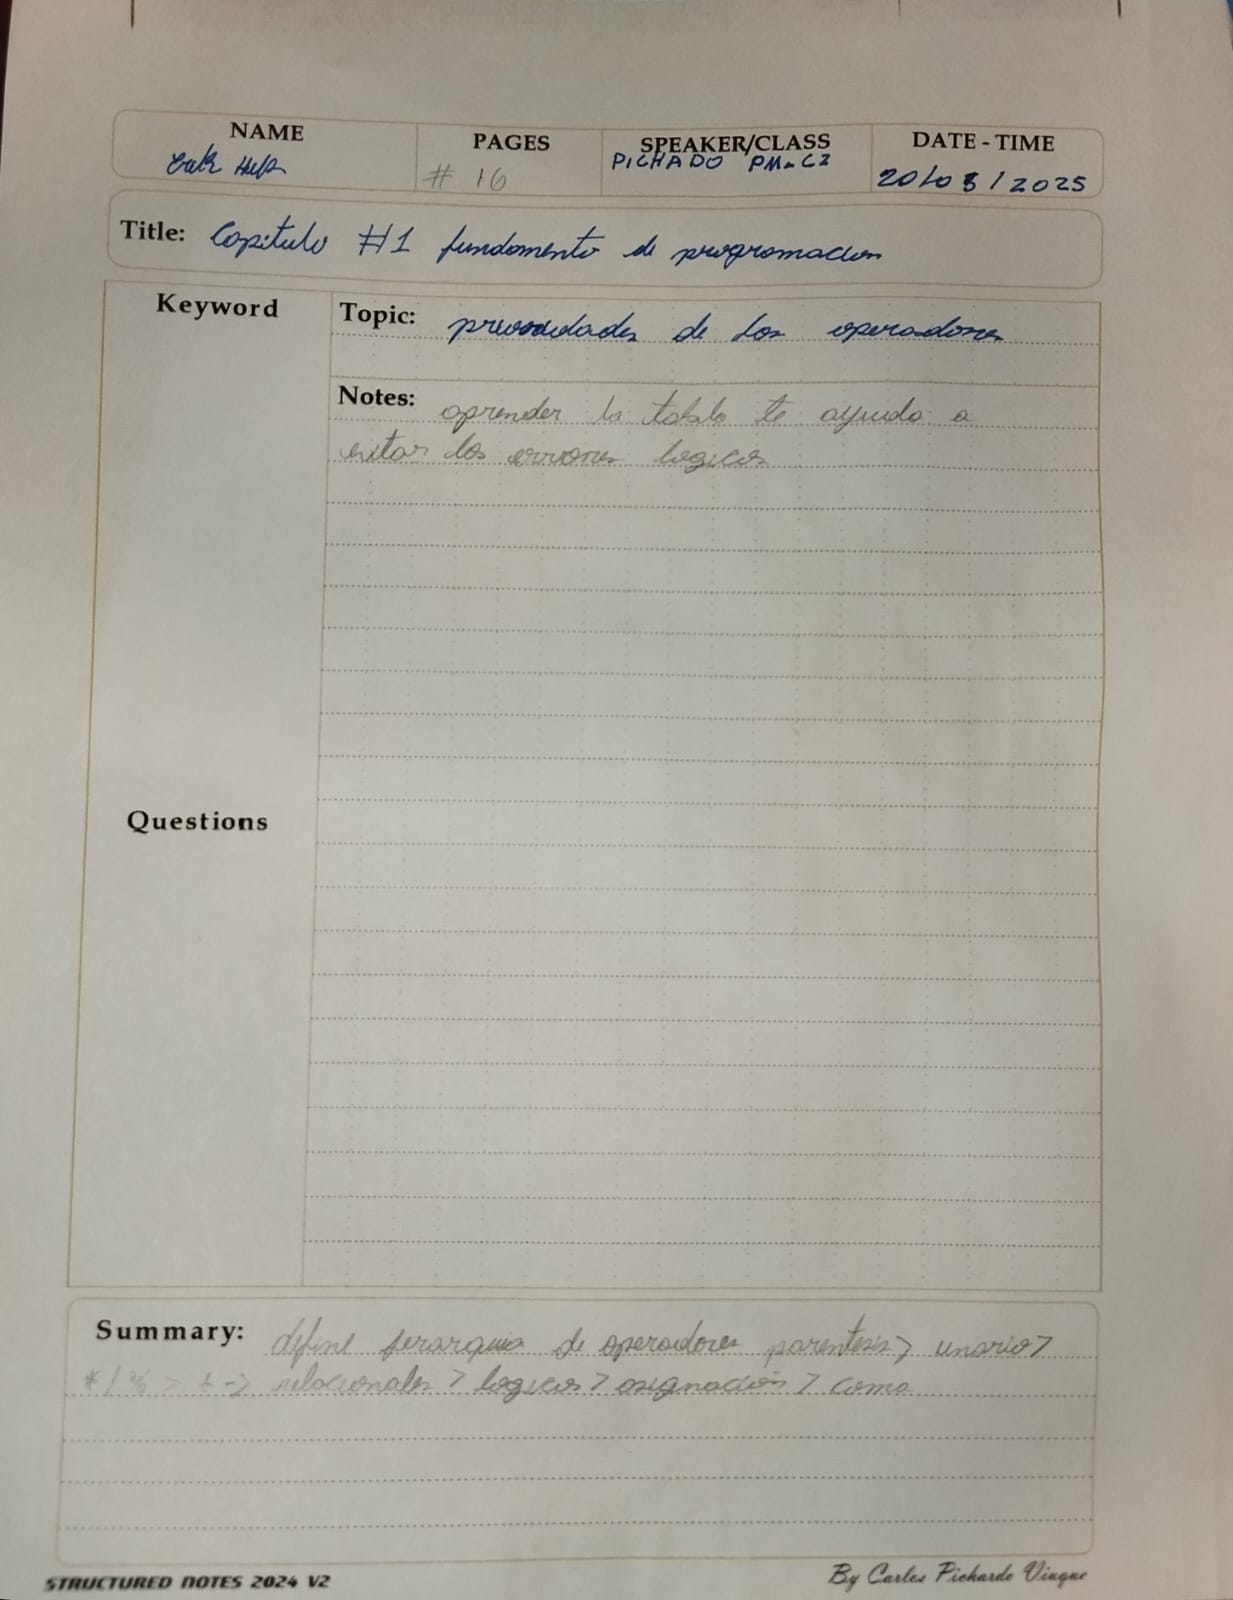 NAME
PAGES
SPEAKER/CLASS
DATE - TIME
# 16
PICHADO PM-C2
20/03/2025
Title: Capitulo #1 fundamento de programacion
Keyword
Topic: de los operadores
Notes: aprender la tabla te ayuda a
evitar los errores logicos
Questions
Summary: define jerarquia de operadores parentesis > unario >
* / % > + - > relacionales > logicos > asignación > coma
STRUCTURED NOTES 2024 V2
By Carlos Pichardo Viuque